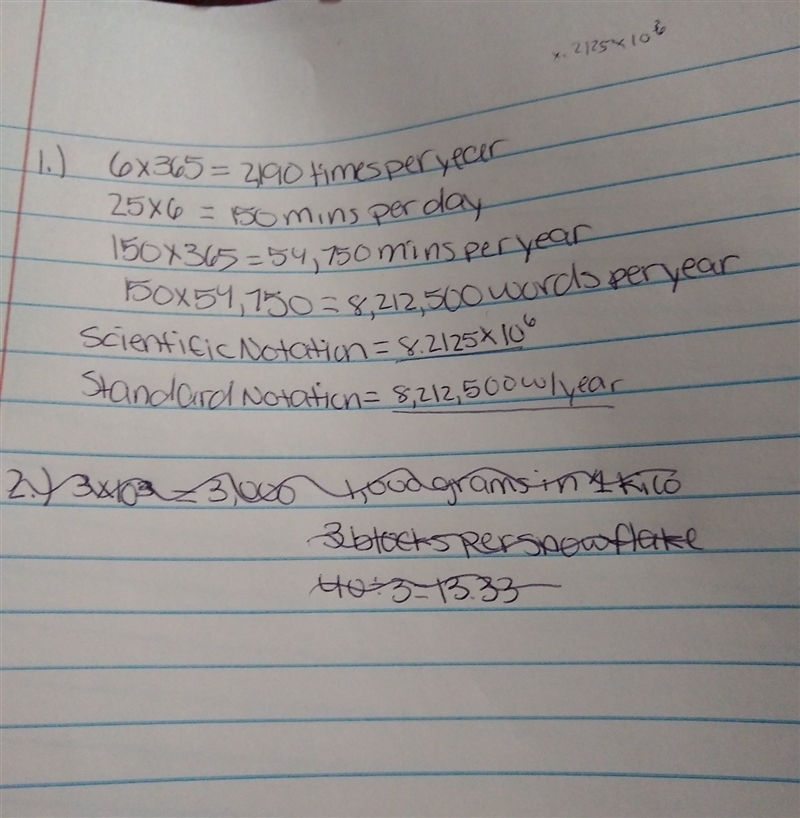 x.2125x10⁶
1.) 6x365=2,190 times per year
25x6 = 150 mins per day
150x365=54,750 mins per year
150x54,750=8,212,500 words per year
Scientific Notation = 8.2125x10⁶
Standard Notation= 8,212,500 w/year
2.) 3x10³ = 3,000 1,000 grams in 1 kilo
3 blocks per snowflake
40÷3=13.33